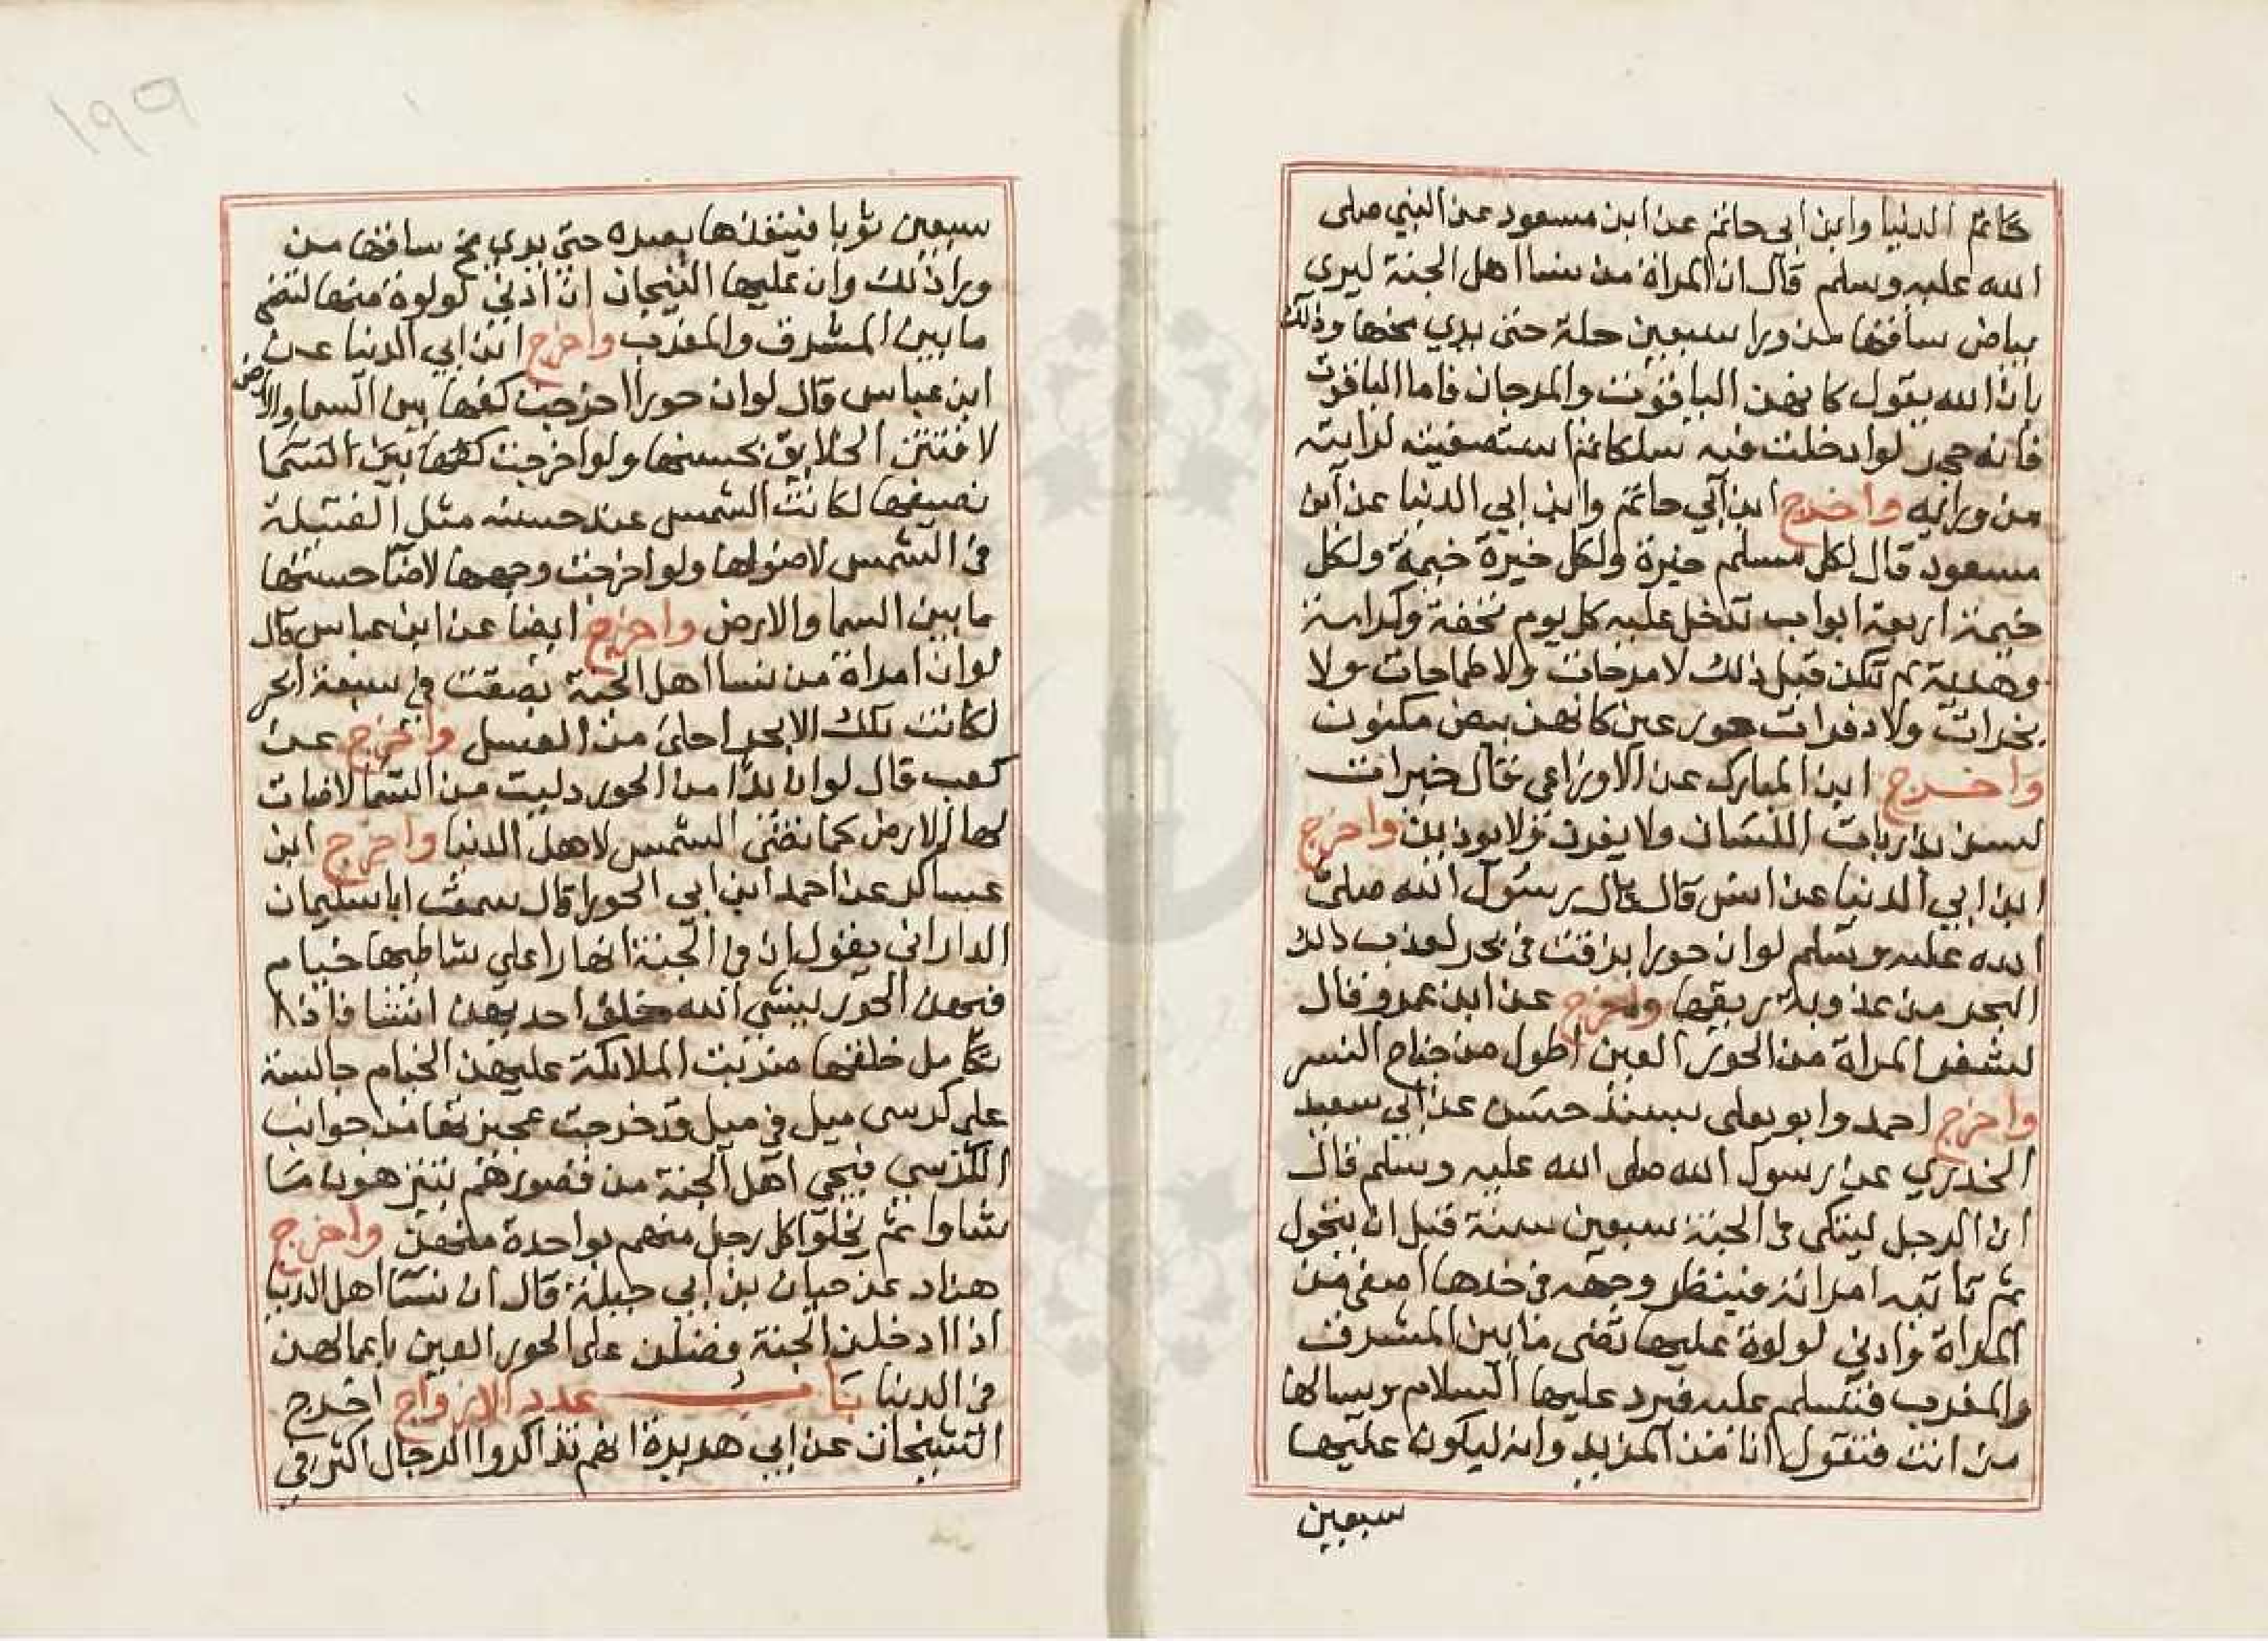 حاتم الدنيا وابن ابي حاتم عن ابن مسعود عن النبي صلى
الله عليه وسلم قال ان المراة من نسا اهل الجنة ليرى
بياض ساقها من ورا سبعين حلة حتى يدي مخها وذلك
بان الله يقول كانهن الياقوت والمرجان فاما الياقوت
فانه حجر لو ادخلت فيه سلكا ثم استصفيته لرايته
من ورايه واخرج ابن ابي حاتم وابن ابي الدنيا عن ابن
مسعود قال لكل مسلم خيرة ولكل خيرة خيمة ولكل
خيمة اربعة ابواب تدخل عليه كل يوم تحفة وكرامة
وهدية لم تكن قبل ذلك لا مرحات ولا طماحات ولا
بخرات ولا دفرات حور عين كانهن بيض مكنون
واخرج ابن المبارك عن الاوزاعي قال خيرات
لسن بذربات اللسان ولا يغرن ولا يوذين واخرج
ابن ابي الدنيا عن انس قال قال رسول الله صلى
الله عليه وسلم لو ان حورا بزقت في بحر لعذب ذلك
البحر من عذوبة ريقها واخرج عن ابن عمرو قال
لشفر المراة من الحور العين اطول من جناح النسر
واخرج احمد وابو يعلى بسند حسن عن ابي سعيد
الخدري عن رسول الله صلى الله عليه وسلم قال
ان الرجل ليتكى في الجنة سبعين سنة قبل ان يتحول
ثم تاتيه امراته فينظر وجهه في خدها اصفى من
المراة وادني لولوة عليها تضى ما بين المشرق
والمغرب فتسلم عليه فيرد عليها السلام ويسالها
من انت فتقول انا من المزيد وانه ليكون عليها
سبعين
١٩٩
سبعين ثوبا فينفذها بصره حتى يدي مخ ساقها من
ورا ذلك وان عليها التيجان ان ادنى لولوة منها لتضي
ما بين المشرق والمغرب واخرج ابن ابي الدنيا عن
ابن عباس قال لو ان حورا اخرجت كفها بين السما والارض
لافتتن الخلايق بحسنها ولو اخرجت كفها بين السما
نصيفها لكانت الشمس عند حسنه مثل الفتيلة
في الشمس لا ضو لها ولو اخرجت وجهها لاضا حسنها
ما بين السما والارض واخرج ايضا عن ابن عباس قال
لو ان امراة من نسا اهل الجنة بصقت في سبعة ابحر
لكانت تلك الابحر احلى من العسل واخرج عن
كعب قال لو ان يدا من الحور دليت من السما لاضات
لها الارض كما تضئ الشمس لاهل الدنيا واخرج ابن
عساكر عن احمد ابن ابي الحورا قال سمعت ابا سليمان
الداراني يقول ان في الجنة انهارا على شاطيها خيام
فيهن الحور لينشي الله خلق احديهن انشا فاذا
تكامل خلقها ضربت الملايكة عليهن الخيام جالسة
على كرسى ميل في ميل قد خرجت عجيزتها من جوانب
الكرسي فيجي اهل الجنة من قصورهم يتنزهون ما
شاوا ثم يخلوا كل رجل منهم بواحدة منهن واخرج
هناد عن حيان بن ابي جبلة قال ان نسا اهل الدنيا
اذا ادخلن الجنة فضلن على الحور العين باعمالهن
في الدنيا باب عدد الازواج اخرج
الشيخان عن ابي هريرة انهم تذاكروا الرجال اكثر في